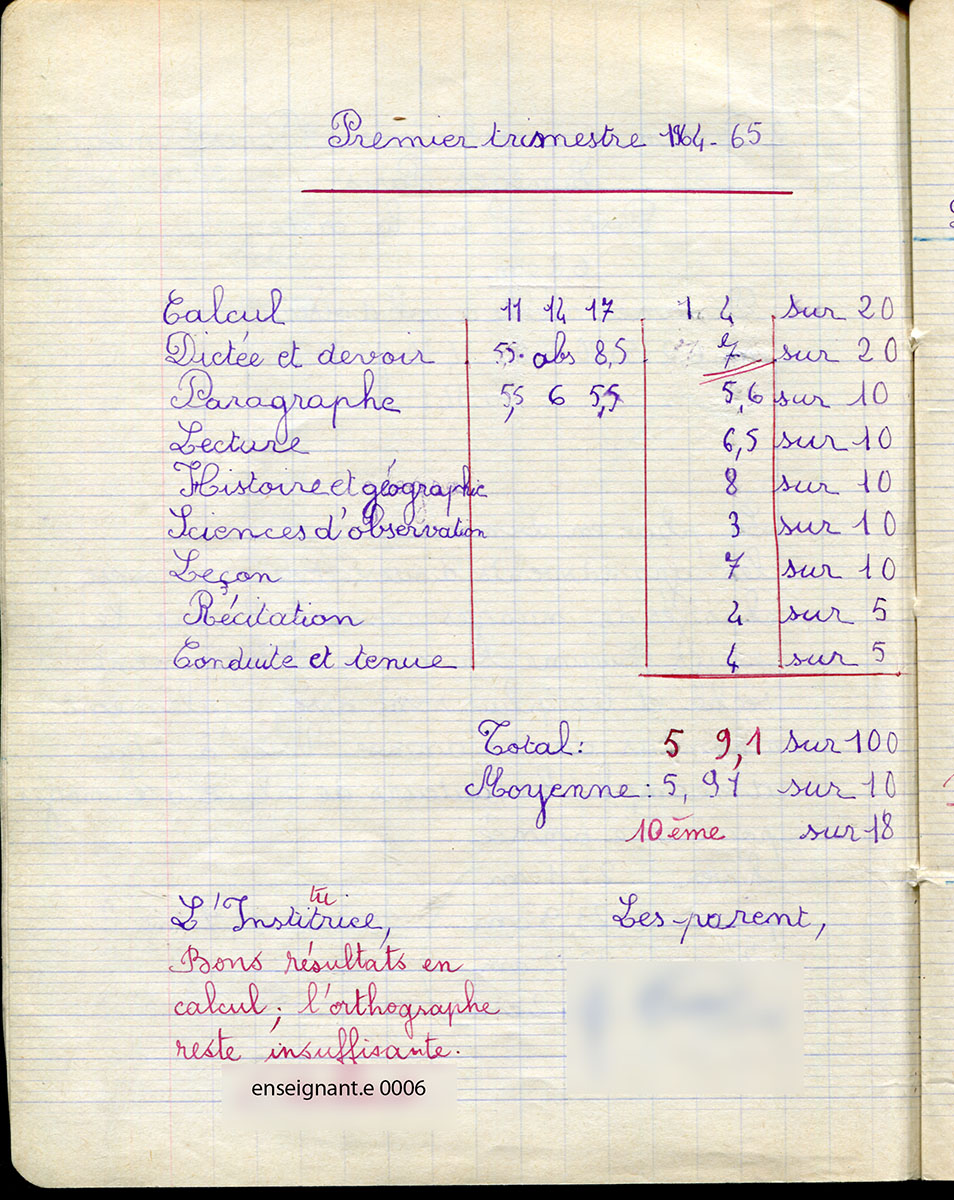 Premier trimestre 1964-65
Calcul 11 14 17 14 sur 20
Dictée et devoir 5,5 abs 8,5 7 sur 20
Paragraphe 5,5 6 5,5 5,6 sur 10
Lecture 6,5 sur 10
Histoire et géographie 8 sur 10
Sciences d'observation 3 sur 10
Leçon 7 sur 10
Récitation 4 sur 5
Conduite et tenue 4 sur 5
Total: 59,1 sur 100
Moyenne: 5,91 sur 10
10ème sur 18
tu
L'Institrice, Les parent,
Bons résultats en
calcul; l'orthographe
reste insuffisante.
enseignant.e 0006